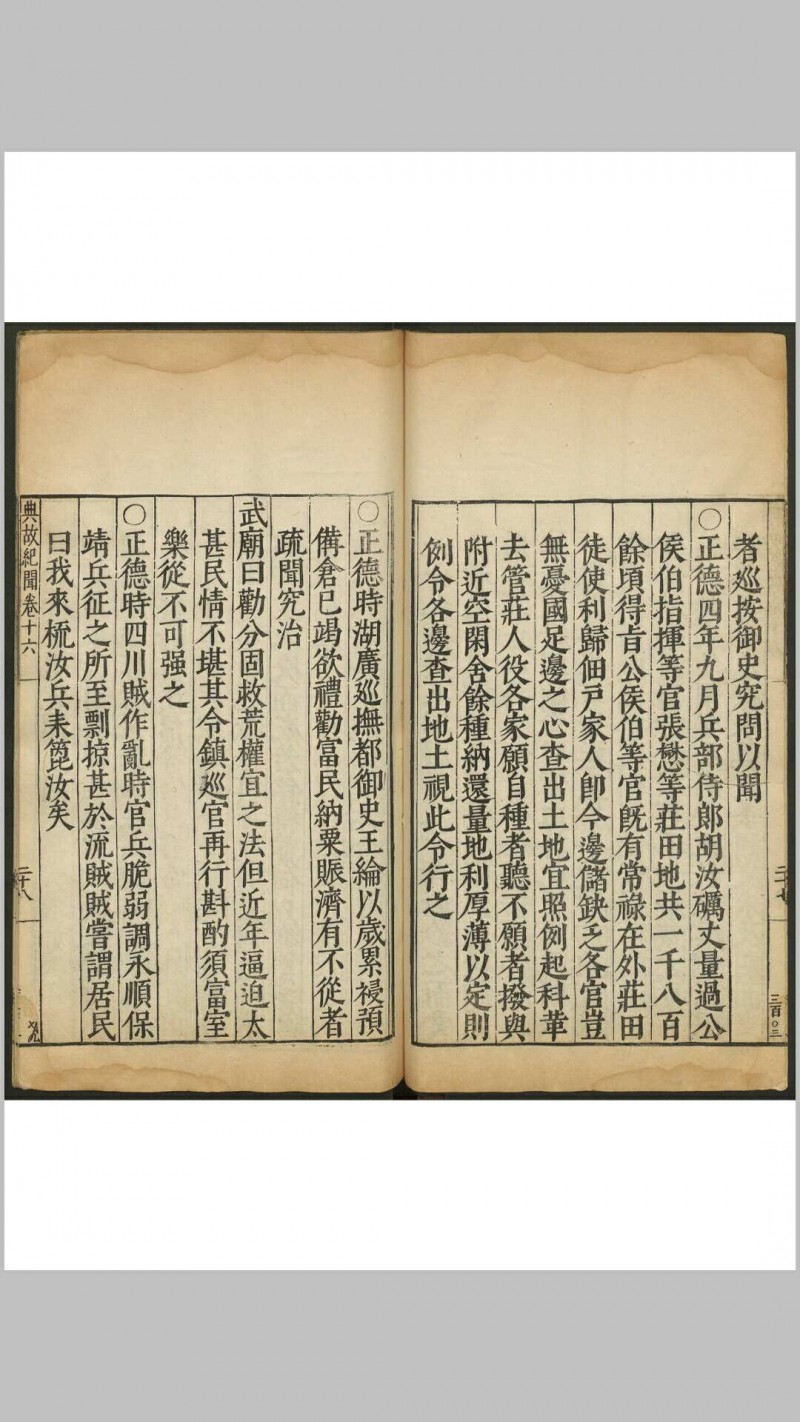 者巡按御史究問以聞
○正德四年九月兵部侍郎胡汝礪丈量過公
侯伯指揮等官張懋等莊田地共一千八百
餘頃得旨公侯伯等官旣有常祿在外莊田
徒使利歸佃戶家人卽今邊儲缺乏各官豈
無憂國足邊之心查出土地宜照例起科革
去管莊人役各家願自種者聽不願者撥與
附近空閑舍餘種納還量地利厚薄以定則
例令各邊查出地土視此令行之
三百〇三
○正德時湖廣巡撫都御史王綸以歲累祲預
備倉已竭欲禮勸富民納粟賑濟有不從者
疏聞究治
武廟曰勸分固救荒權宜之法但近年逼迫太
甚民情不堪其令鎮巡官再行斟酌須富室
樂從不可强之
○正德時四川賊作亂時官兵脆弱調永順保
靖兵征之所至剽掠甚於流賊賊嘗謂居民
曰我來梳汝兵来篦汝矣
典故紀聞卷十六
二十八